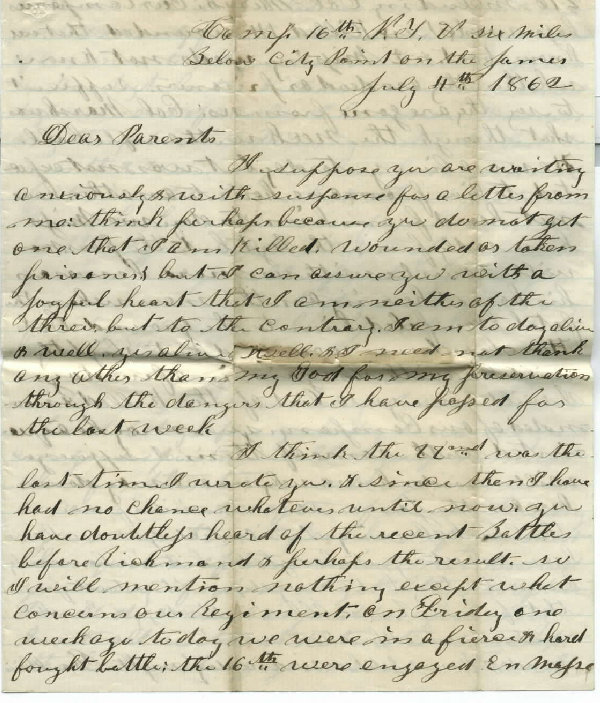 Camp 16th N.Y. V. six miles
Below City Point on the James
July 4th 1862
Dear Parents
I suppose you are waiting
anxiously & with suspense for a letter from
me: think perhaps because you do not get
one that I am killed, wounded or taken
prisoner but I can assure you with a
joyful heart that I am neither of the
three, but to the contrary, I am to day alive
& well. yes alive & well. & I need not thank
any other than my God for my preservation
through the dangers that I have passed for
the last week
I think the 22nd was the
last time I wrote you. & since then I have
had no chance whatever until now. you
have doubtless heard of the recent Battles
before Richmond & perhaps the result. so
I will mention nothing except what
concerns our Regiment. On Friday one
week ago to day we were in a fierce & hard
fought battle; the 16th were engaged En Masse